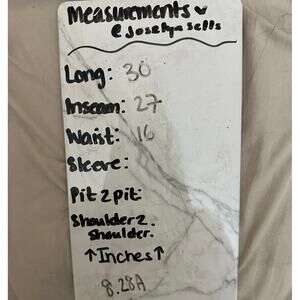 Measurements ♥
@joselynsells
Long: 30
Inseam: 27
Waist: 16
Sleeve:
Pit 2 pit:
Shoulder 2
Shoulder.
↑Inches↑
8.28A